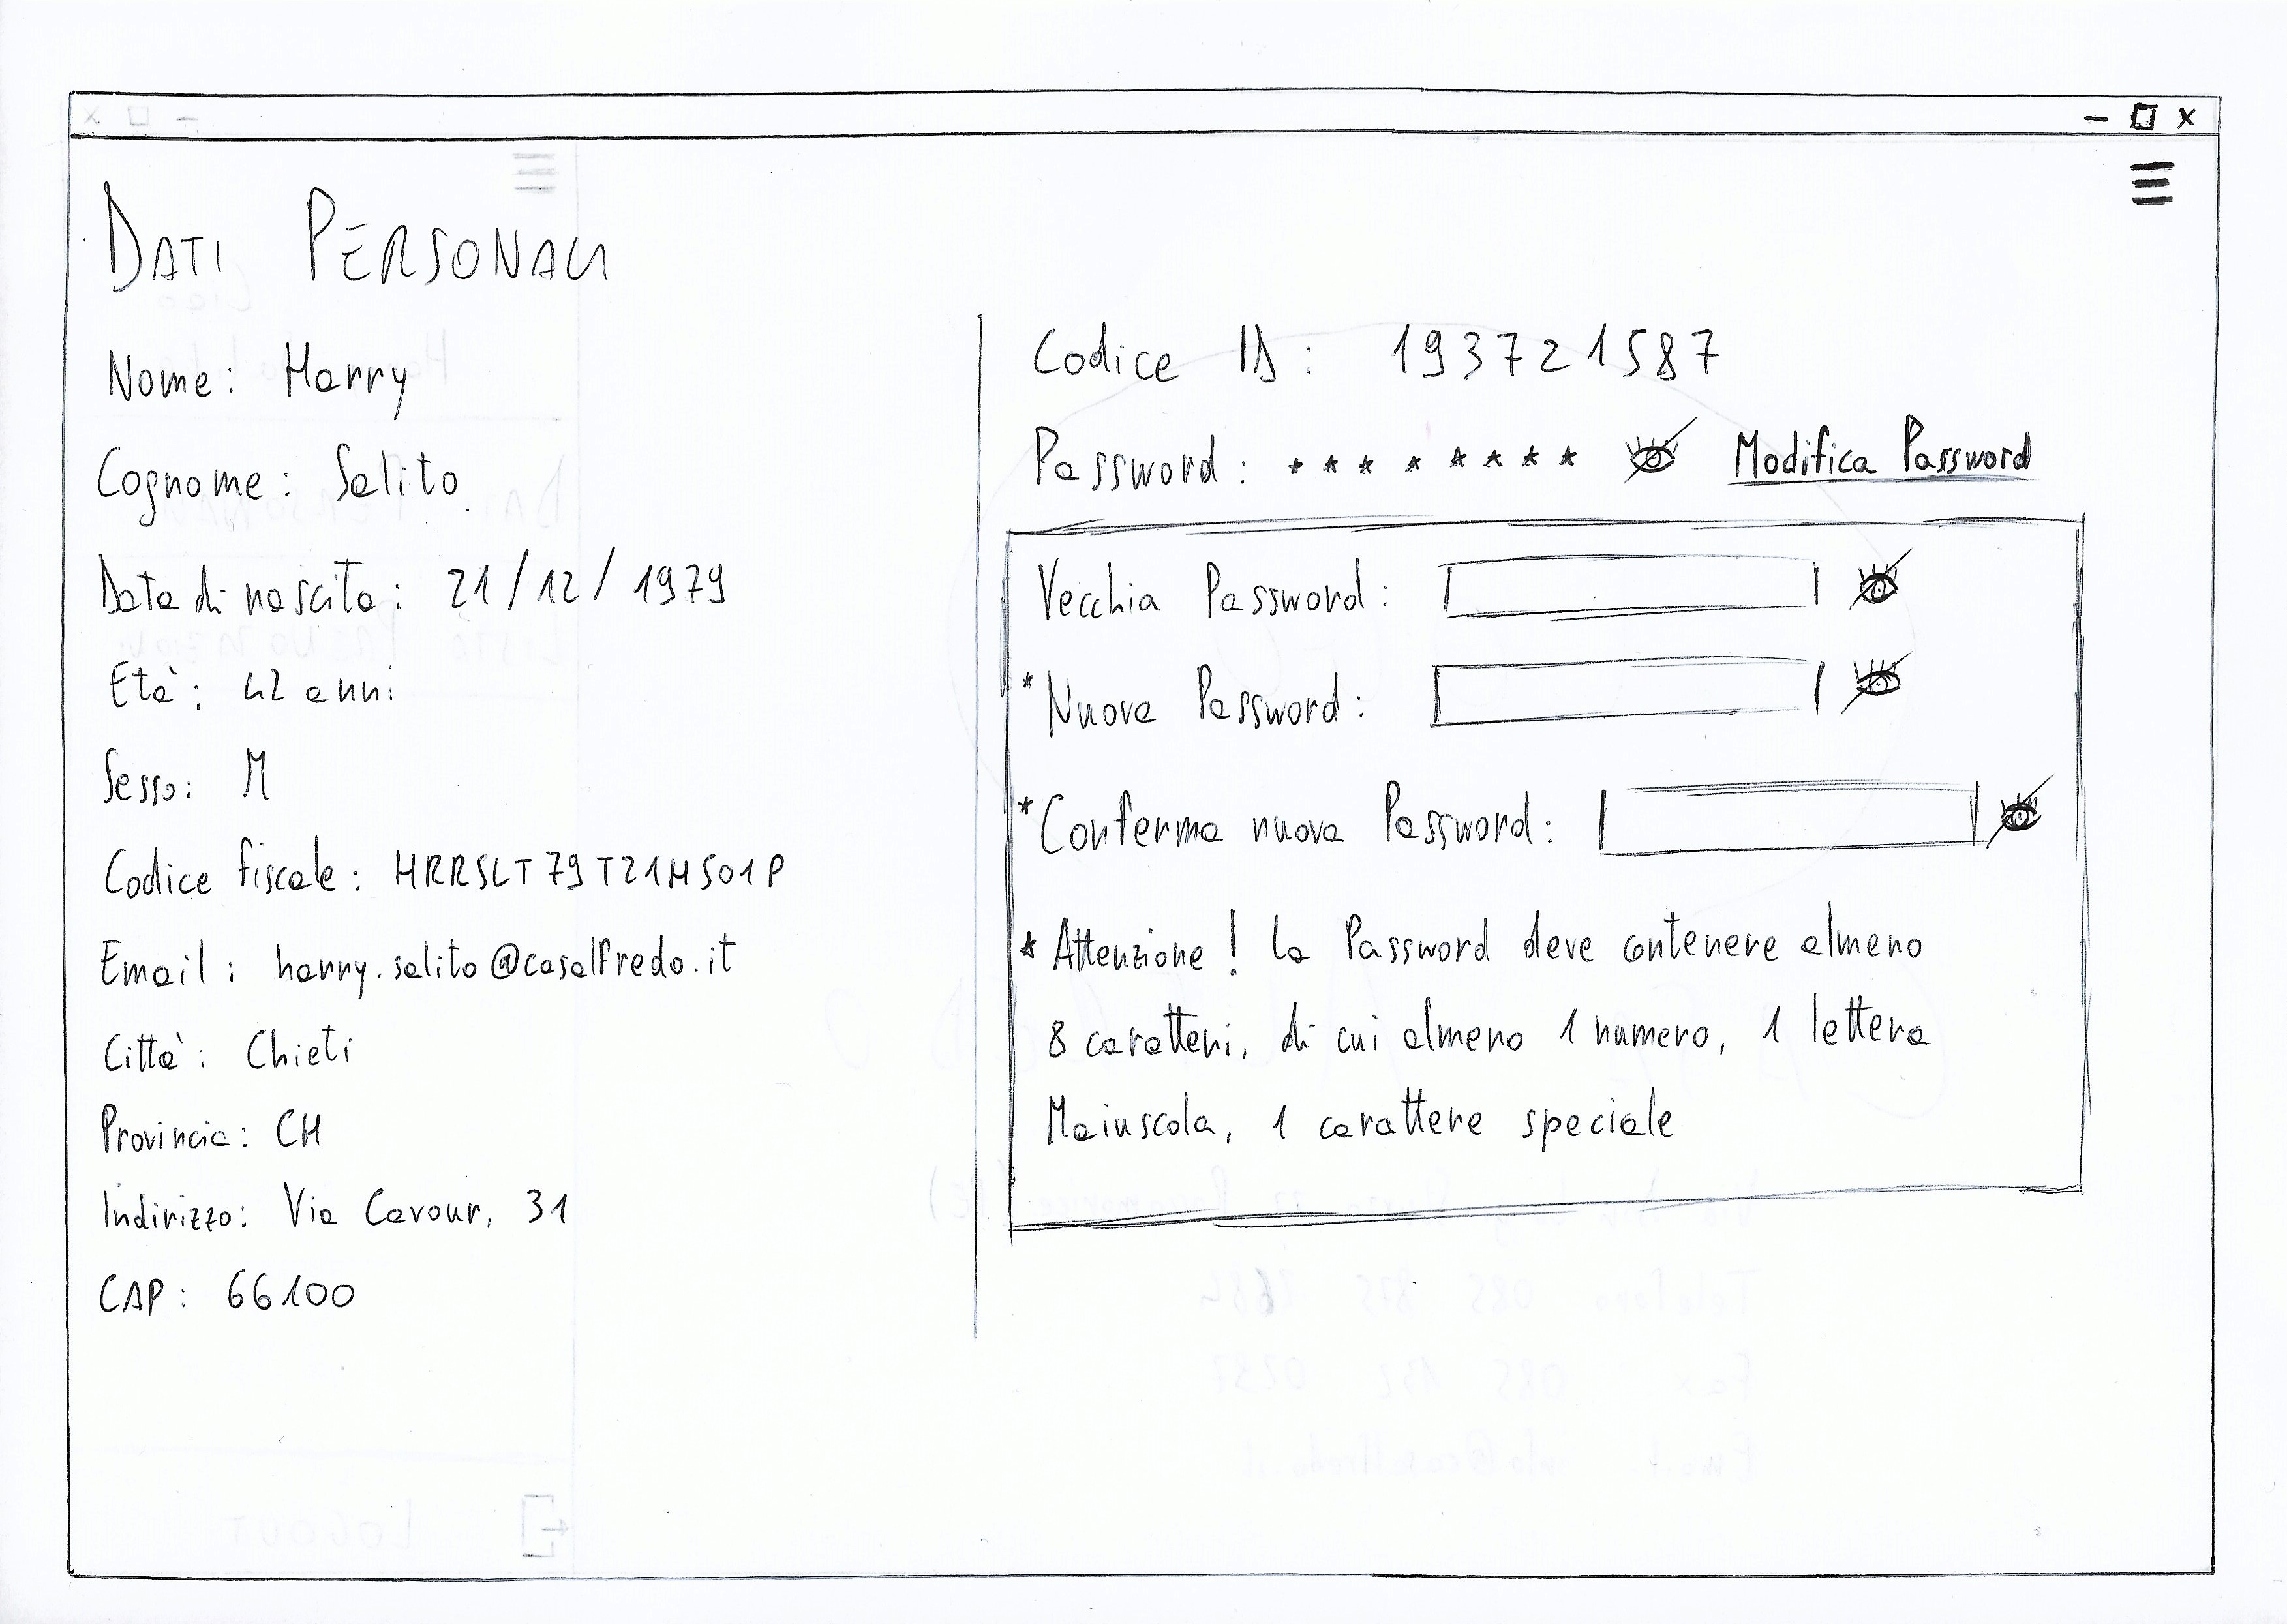 DATI PERSONALI
Nome: Harry
Cognome: Salito
Data di nascita: 21/12/1979
Età: 42 anni
Sesso: M
Codice fiscale: HRRSLT79T21H501P
Email: harry.salito@casalfredo.it
Città: Chieti
Provincia: CH
Indirizzo: Via Cavour, 31
CAP: 66100
Codice ID: 193721587
Password: * * * * * * * * Modifica Password
Vecchia Password:
*Nuova Password:
*Conferma nuova Password:
* Attenzione! La Password deve contenere almeno
8 caratteri, di cui almeno 1 numero, 1 lettera
Maiuscola, 1 carattere speciale